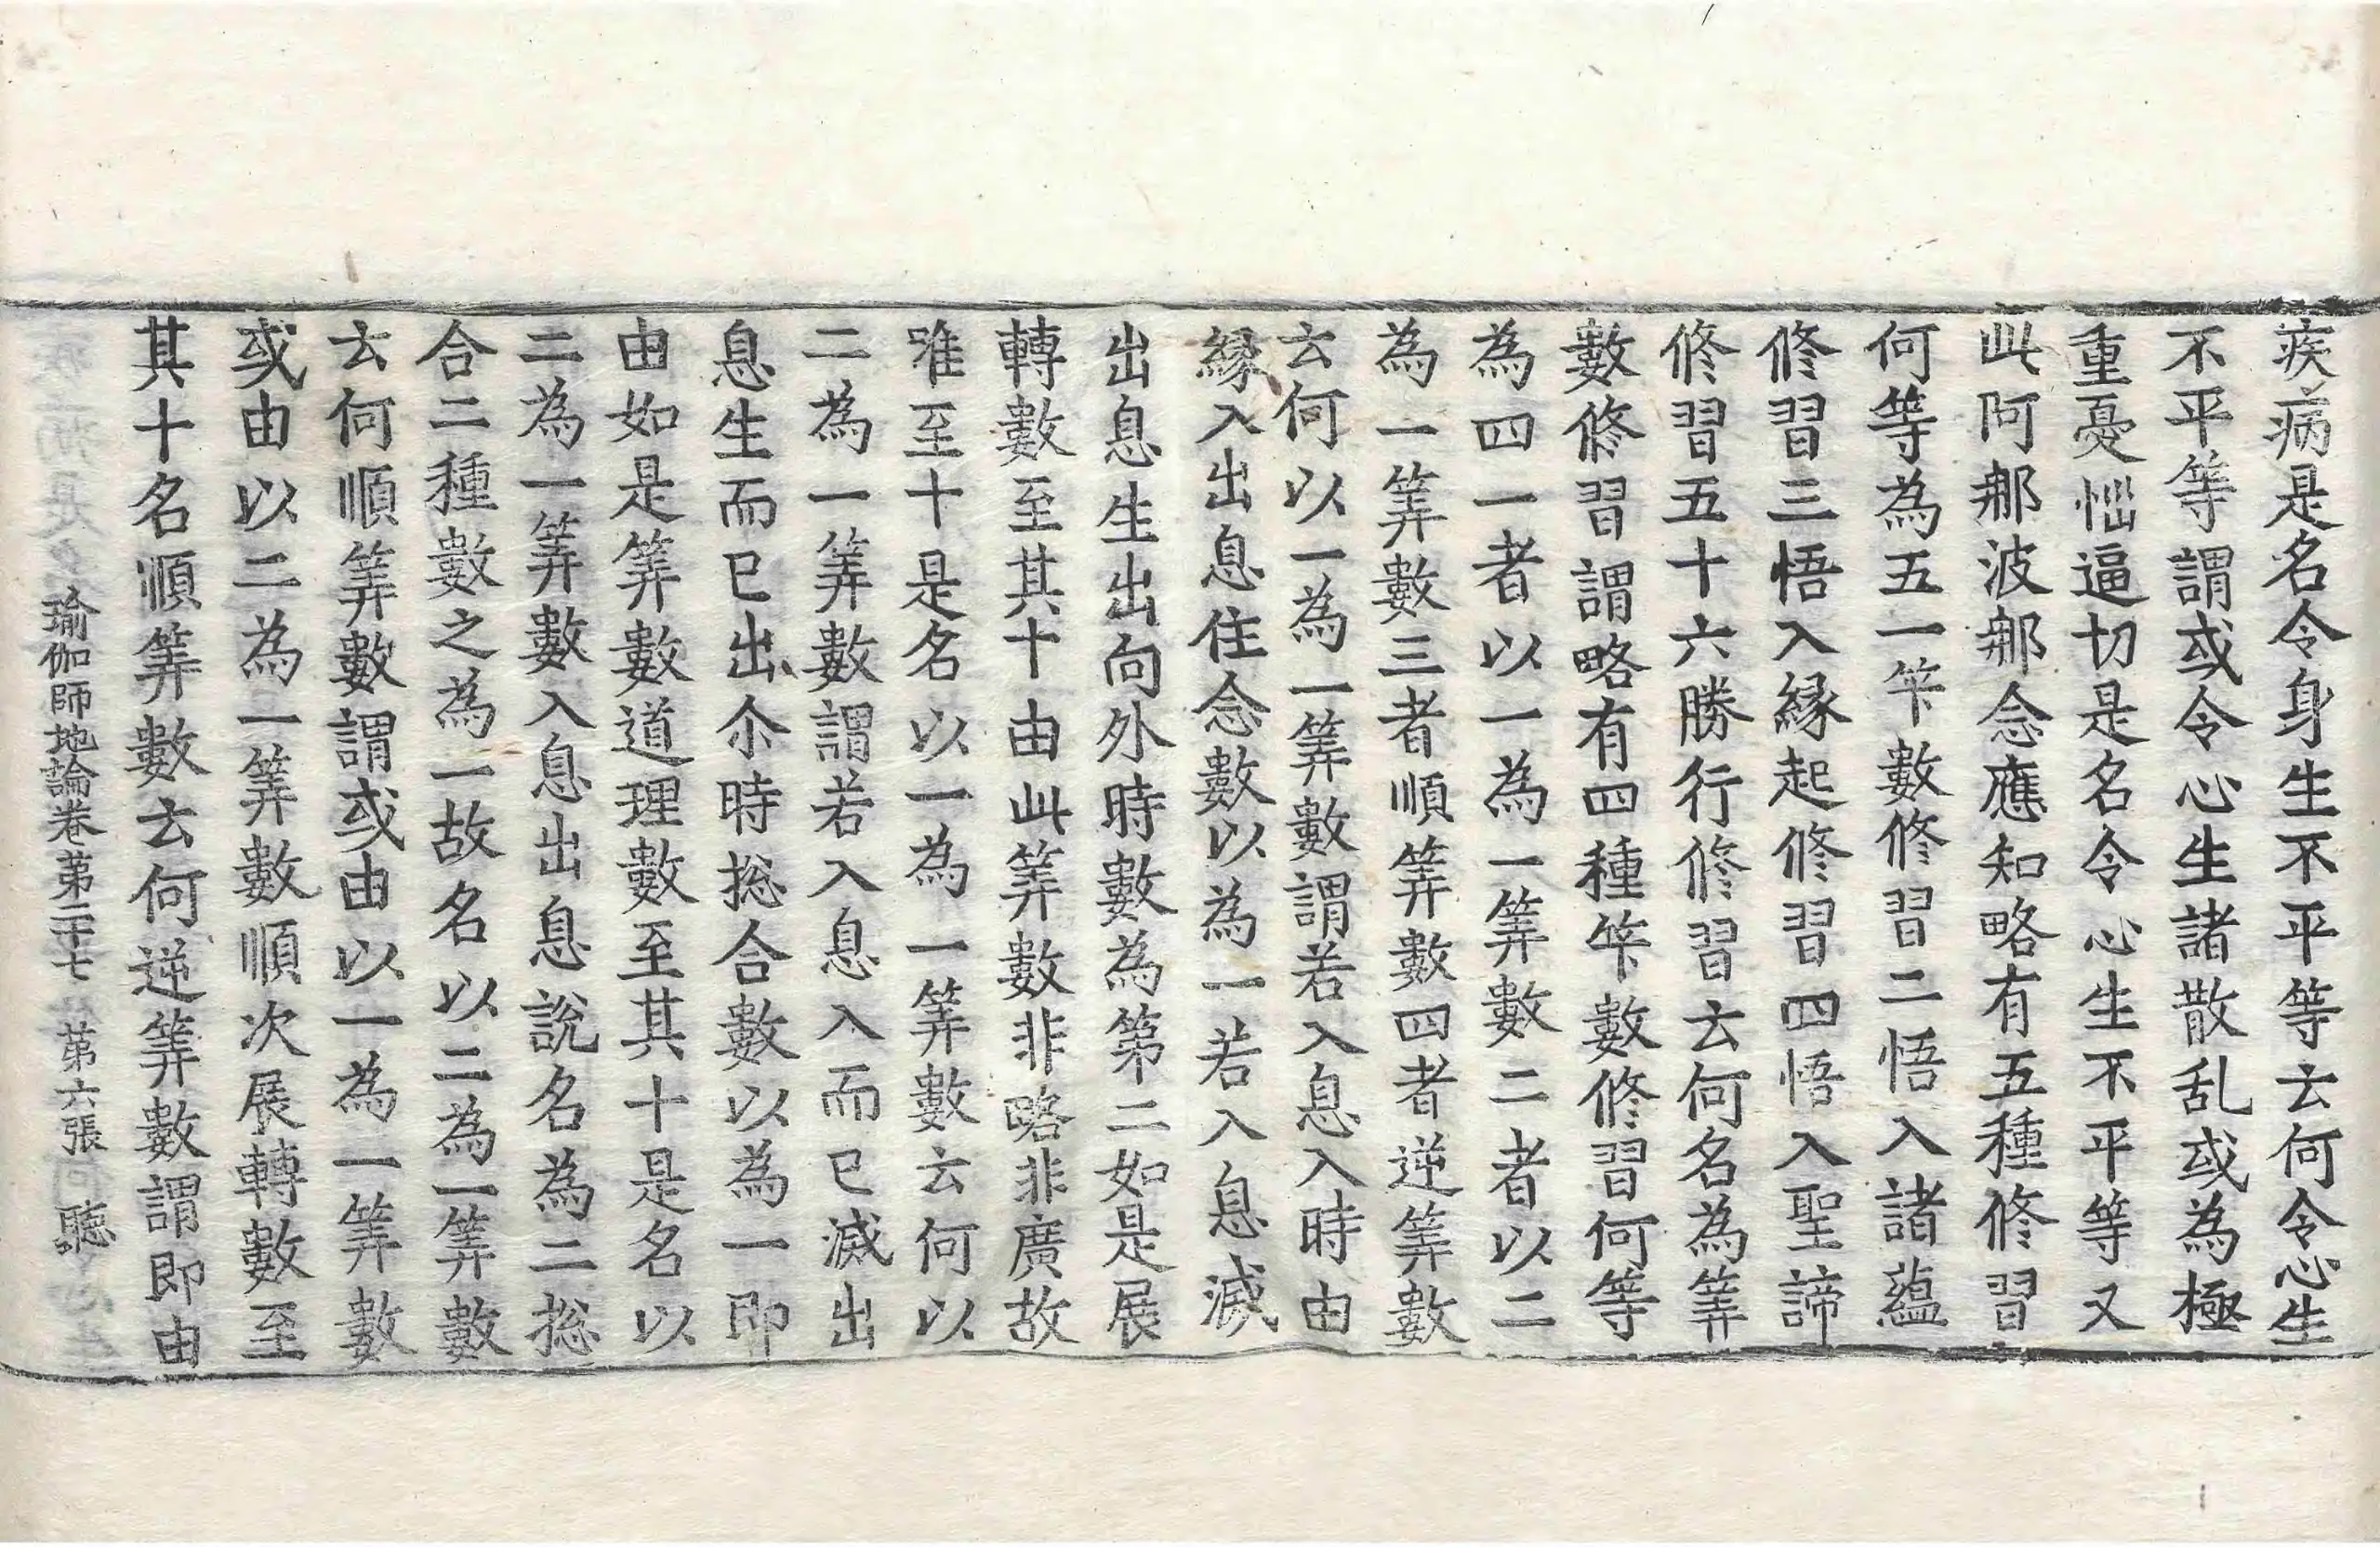 疾病是名令身生不平等云何令心生
不平等謂或令心生諸散乱或為極
重憂惱逼切是名令心生不平等又
此阿那波那念應知略有五種修習
何等為五一笇數修習二悟入諸蘊
修習三悟入縁起修習四悟入聖諦
修習五十六勝行修習云何名為筭
數修習謂略有四種笇數修習何等
為四一者以一為一筭數二者以二
為一筭數三者順筭數四者逆筭數
云何以一為一筭數謂若入息入時由
縁入出息住念數以為一若入息滅
出息生出向外時數為第二如是展
轉數至其十由此筭數非略非廣故
唯至十是名以一為一筭數云何以
二為一筭數謂若入息入而已滅出
息生而已出尒時捴合數以為一即
由如是筭數道理數至其十是名以
二為一筭數入息出息說名為二捴
合二種數之為一故名以二為一筭數
云何順筭數謂或由以一為一筭數
或由以二為一筭數順次展轉數至
其十名順筭數云何逆筭數謂即由
瑜伽師地論卷苐二十七 苐六張 聴